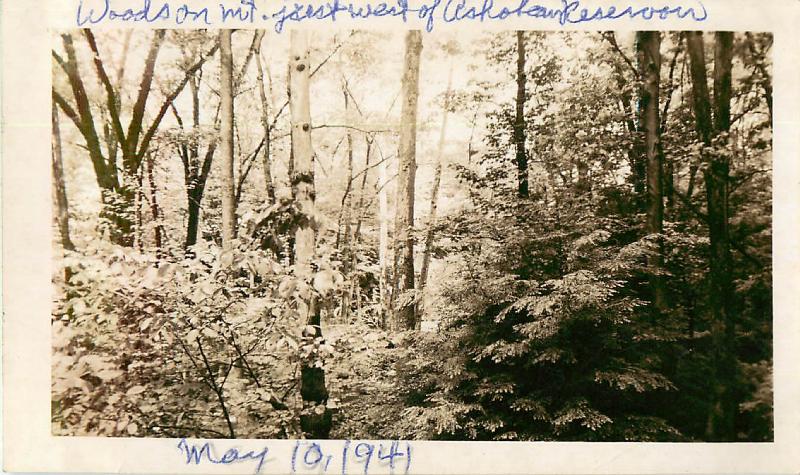 Woods on mt. just west of Ashokan Reservoir
May 10, 1941